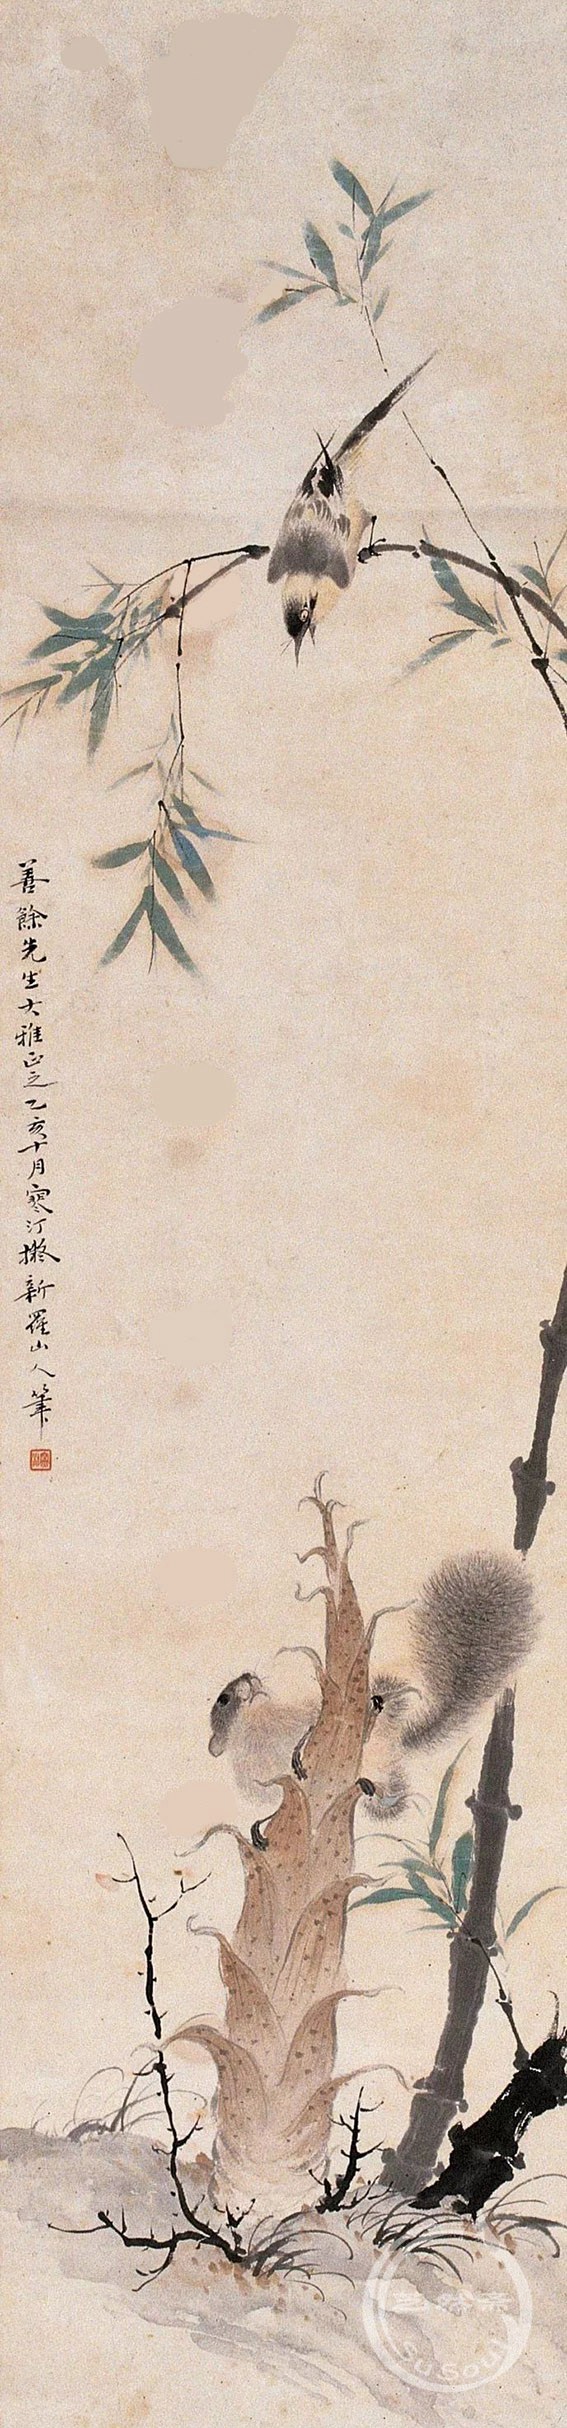 善餘先生大雅正之乙亥十月寒汀撫新羅山人筆
SuSoul